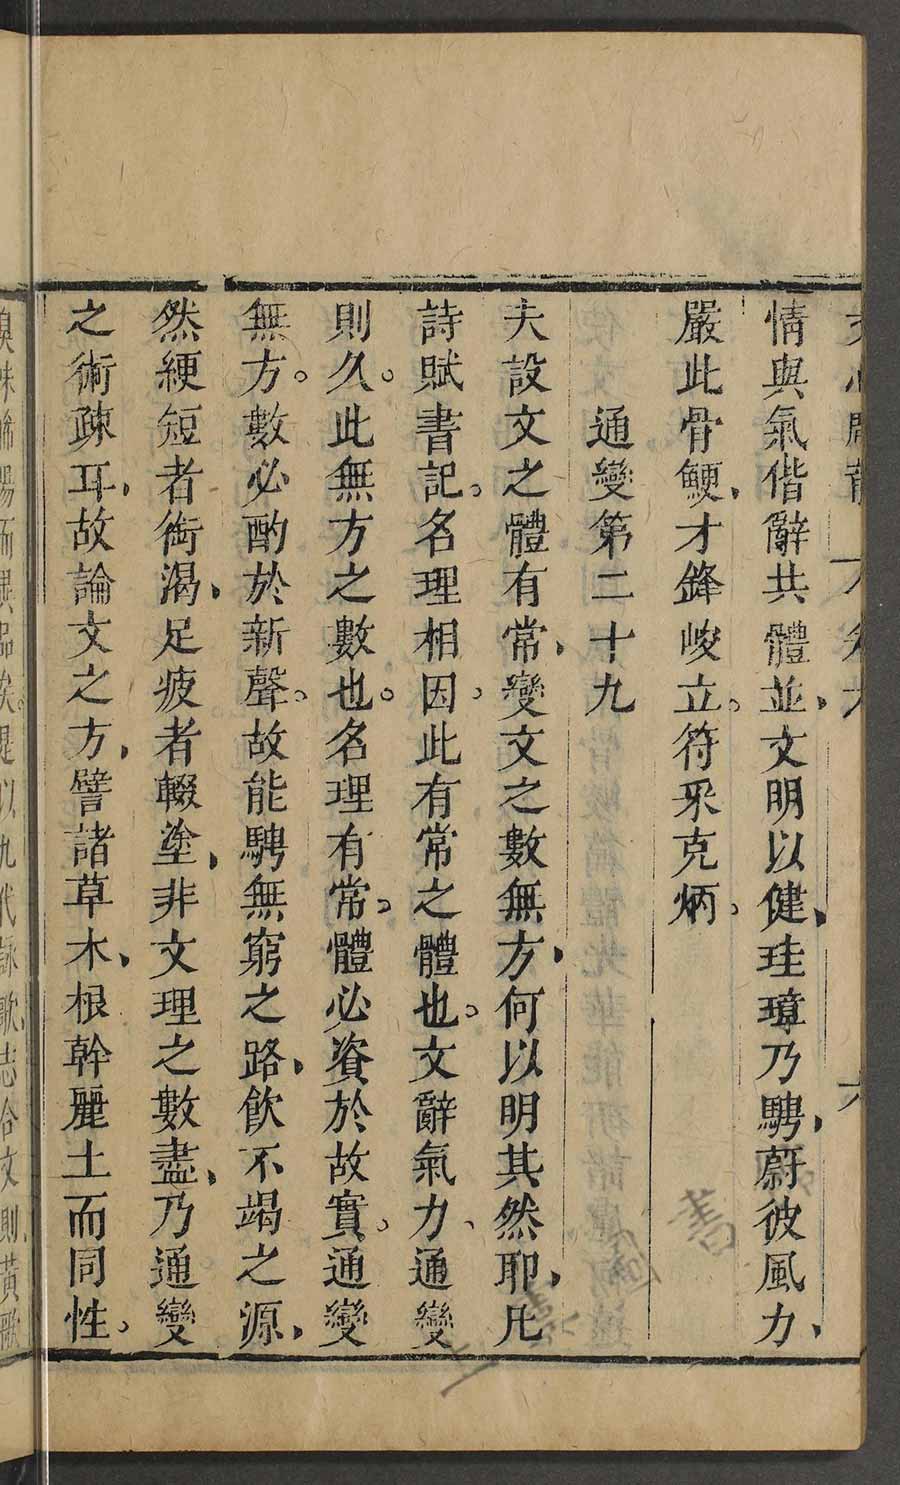 情與氣偕辭共體並、文明以健、珪璋乃騁、蔚彼風力、
嚴此骨鯁、才鋒峻立。符采克炳。
通變第二十九
夫設文之體有常、變文之數無方、何以明其然耶、凡
詩賦書記。名理相因、此有常之體也。文辭氣力、通變
則久。此無方之數也。名理有常。體必資於故實。通變
無方。數必酌於新聲。故能騁無窮之路、飲不竭之源、
然綆短者銜渴、足疲者輟塗、非文理之數盡、乃通變
之術疎耳、故論文之方、譬諸草木、根幹麗土而同性。